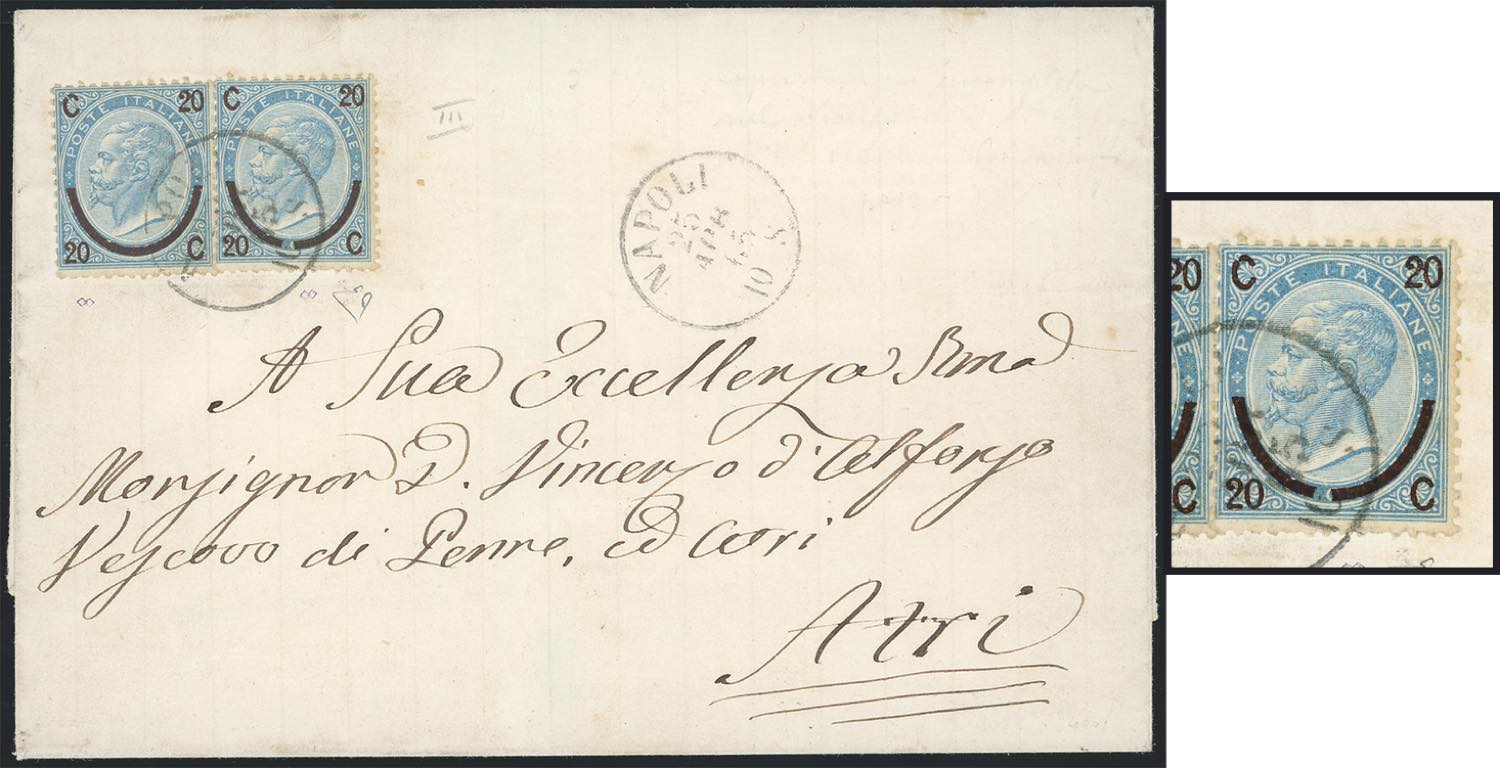 C 20
POSTE ITALIANE
20 C
C 20
POSTE ITALIANE
20 C
III
NAPOLI
25
APR
65
10 S
8
8
A Sua Eccellenza Rma
Monsignor D. Vincenzo d'Alfonzo
Vescovo di Penne, ed Atri
Atri
20
C 20
POSTE ITALIANE
C
20 C